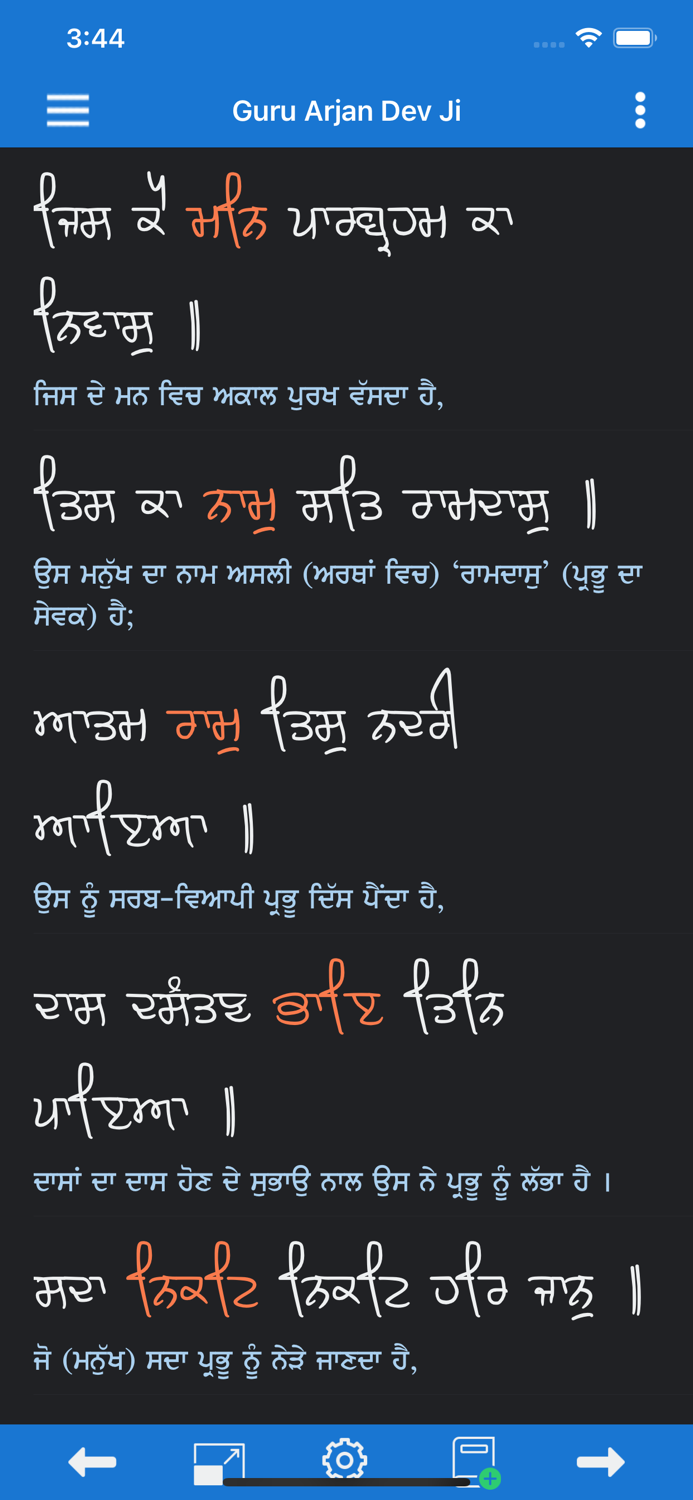 3:44
Guru Arjan Dev Ji
ਜਿਸ ਕੈ ਮਨਿ ਪਾਰਬ੍ਰਹਮ ਕਾ
ਨਿਵਾਸੁ ॥
ਜਿਸ ਦੇ ਮਨ ਵਿਚ ਅਕਾਲ ਪੁਰਖ ਵੱਸਦਾ ਹੈ,
ਤਿਸ ਕਾ ਨਾਮੁ ਸਤਿ ਰਾਮਦਾਸੁ ॥
ਉਸ ਮਨੁੱਖ ਦਾ ਨਾਮ ਅਸਲੀ (ਅਰਥਾਂ ਵਿਚ) ‘ਰਾਮਦਾਸੁ’ (ਪ੍ਰਭੂ ਦਾ
ਸੇਵਕ) ਹੈ;
ਆਤਮ ਰਾਮੁ ਤਿਸੁ ਨਦਰੀ
ਆਇਆ ॥
ਉਸ ਨੂੰ ਸਰਬ-ਵਿਆਪੀ ਪ੍ਰਭੂ ਦਿੱਸ ਪੈਂਦਾ ਹੈ,
ਦਾਸ ਦਸੰਤਣ ਭਾਇ ਤਿਨਿ
ਪਾਇਆ ॥
ਦਾਸਾਂ ਦਾ ਦਾਸ ਹੋਣ ਦੇ ਸੁਭਾਉ ਨਾਲ ਉਸ ਨੇ ਪ੍ਰਭੂ ਨੂੰ ਲੱਭਾ ਹੈ ।
ਸਦਾ ਨਿਕਟਿ ਨਿਕਟਿ ਹਰਿ ਜਾਨੁ ॥
ਜੋ (ਮਨੁੱਖ) ਸਦਾ ਪ੍ਰਭੂ ਨੂੰ ਨੇੜੇ ਜਾਣਦਾ ਹੈ,